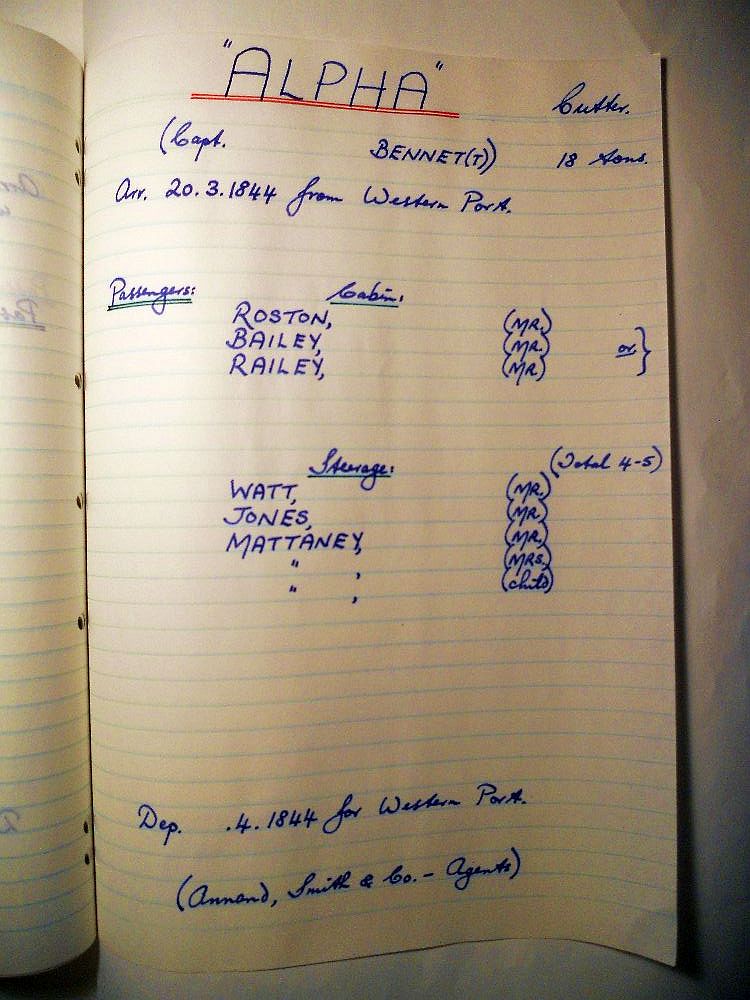 "ALPHA"
Cutter.
(Capt. BENNET(T)) 18 tons.
Arr. 20.3.1844 from Western Port.
Passengers: Cabin:
ROSTON, (MR.)
BAILEY, (MR.) or }
RAILEY, (MR)
Steerage: (Total 4-5)
WATT, (MR.)
JONES, (MR.)
MATTANEY, (MR.)
" , (MRS.)
" , (child)
Dep. .4.1844 for Western Port.
(Annand, Smith & Co. - Agents)